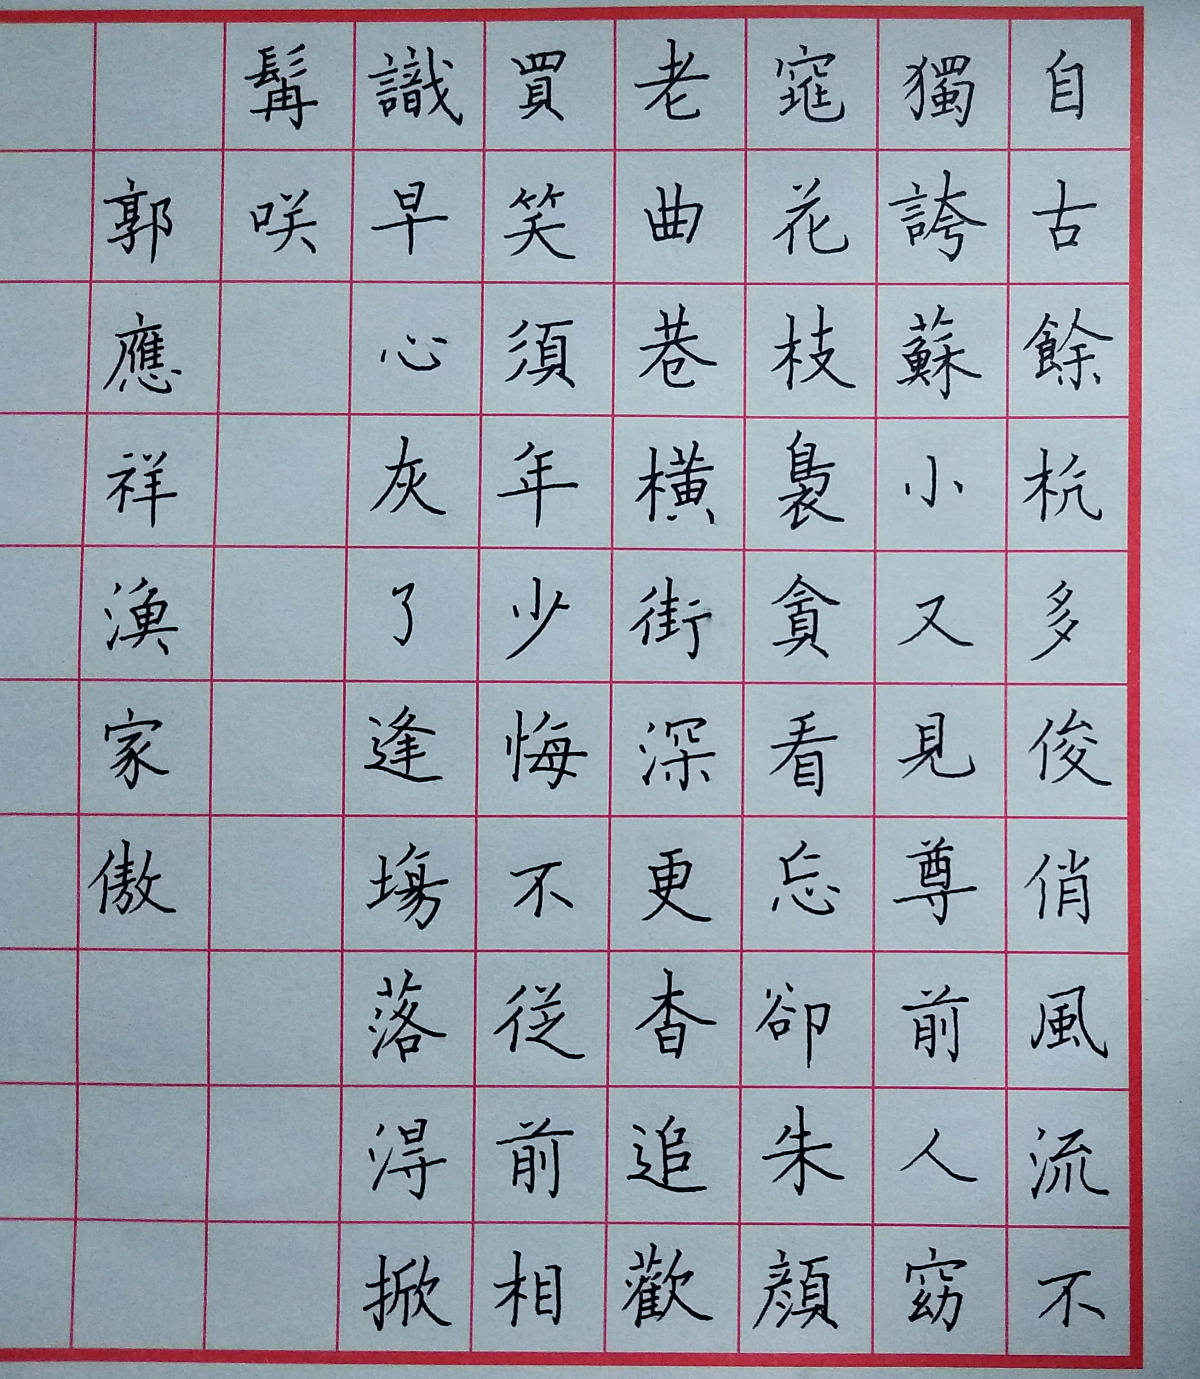 自古餘杭多俊俏風流不
獨誇蘇小又見尊前人窈
窕花枝裊貪看忘卻朱顏
老曲巷橫街深更杳追歡
買笑須年少悔不從前相
識早心灰了逢場落得掀
髯咲
郭應祥漁家傲